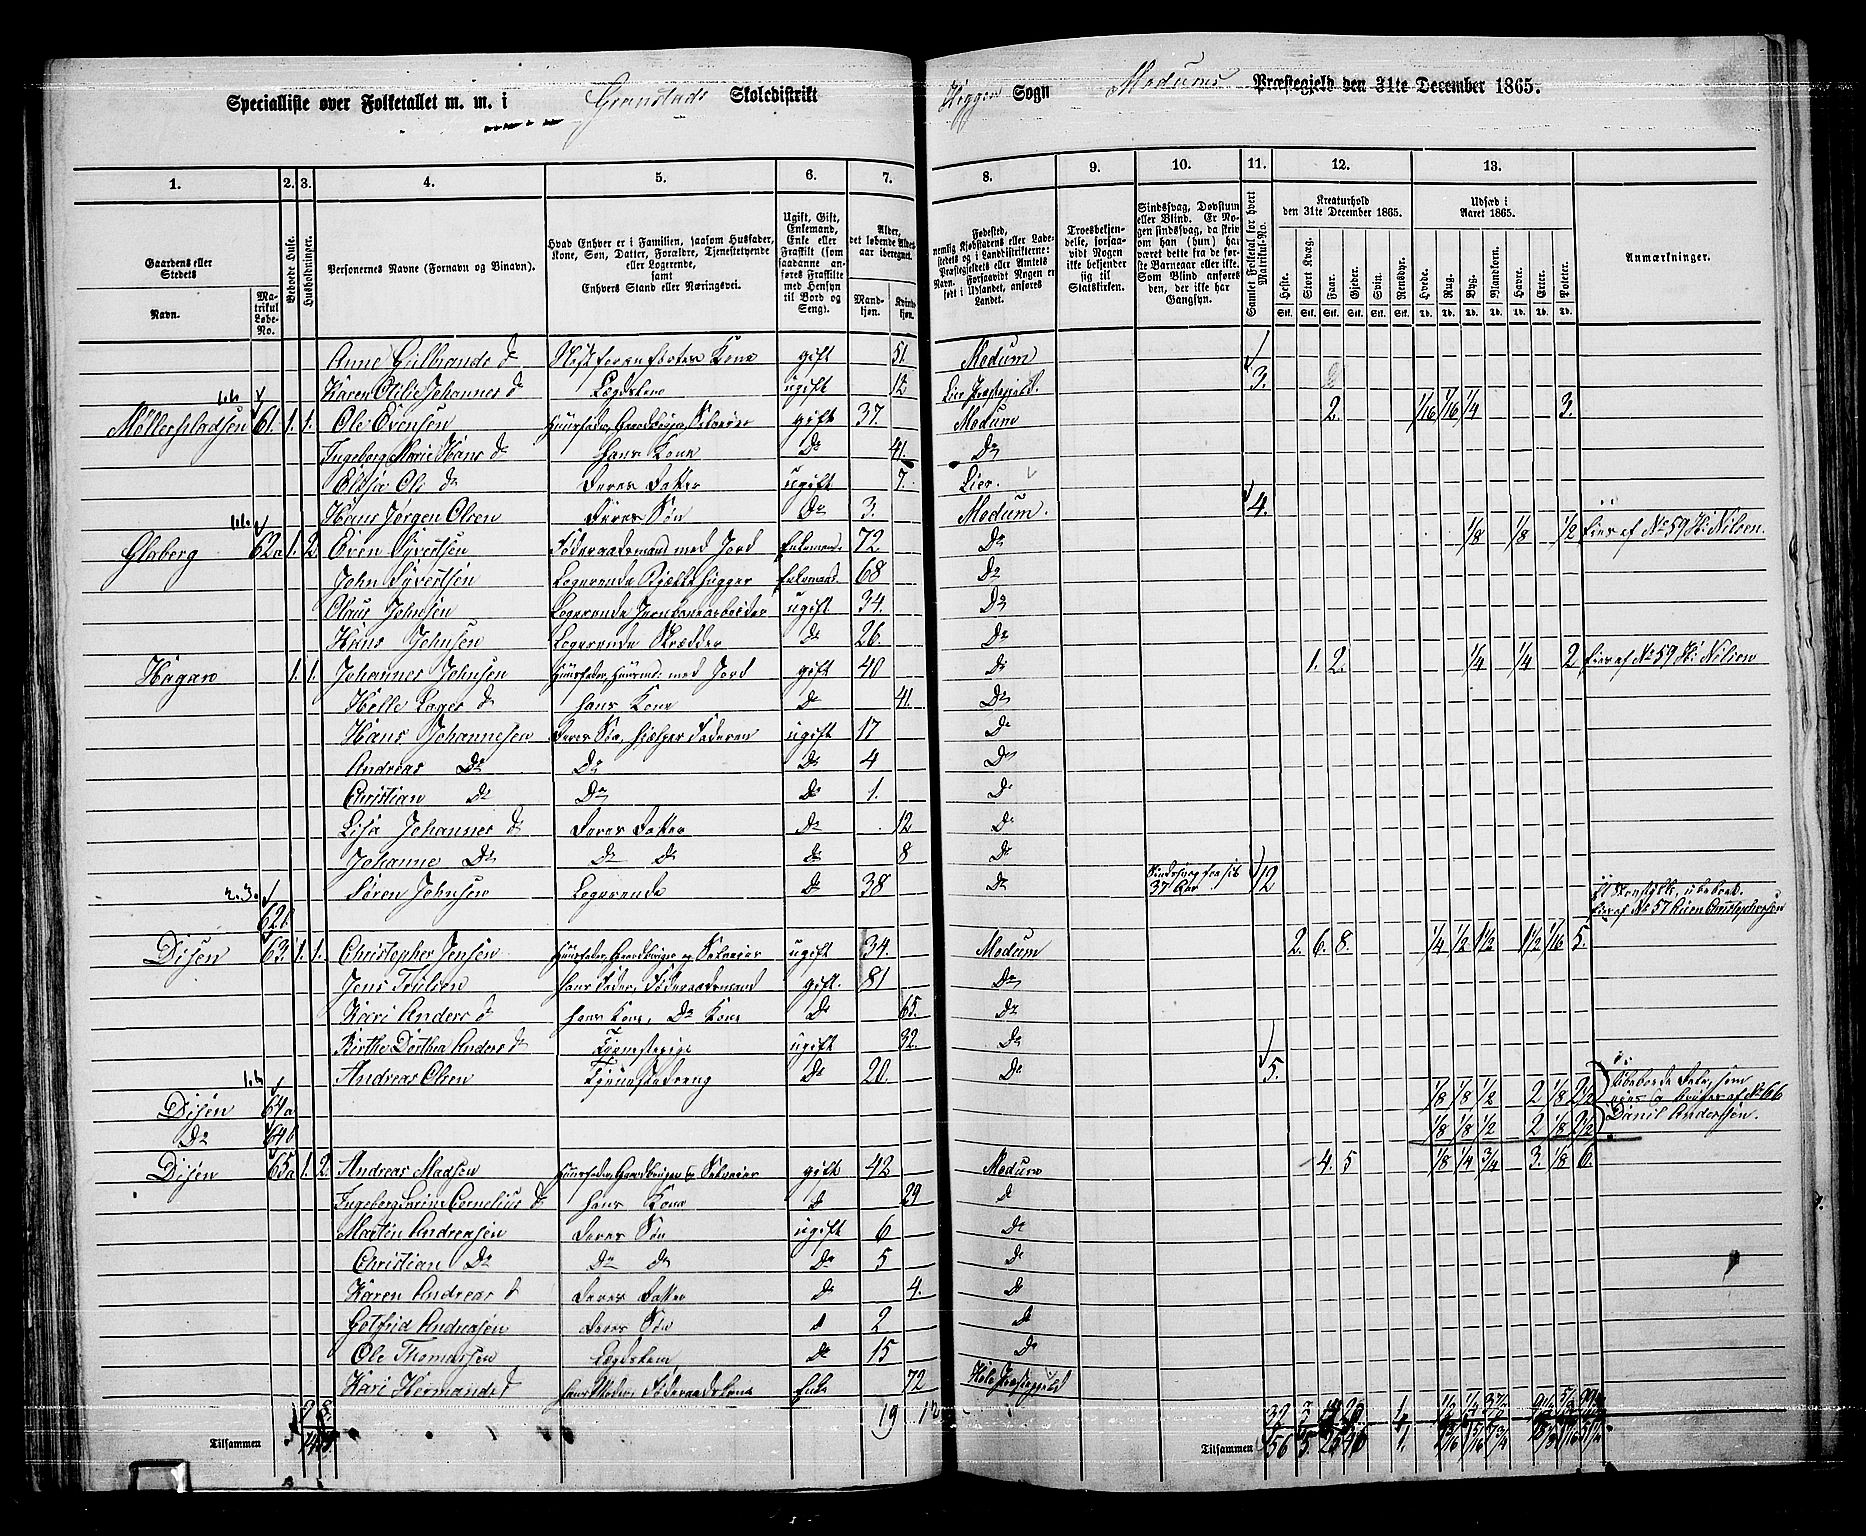 Specialliste over Folketallet m. m. i Grønstads Skoledistrikt Heggen Sogn Modums Præstegjeld den 31te December 1865.
1. 2. 3. 4. 5. 6. 7. 8. 9. 10. 11. 12. 13.
Gaardens eller Stedets
Navn.
Matrikul Løbe-No.
Beboede Huse.
Husholdninger.
Personernes Navne (Fornavn og Binavn).
Hvad Enhver er i Familien, saasom Husfader, Kone, Søn, Datter, Forældre, Tjenestetyende eller Logerende, samt Enhvers Stand eller Næringsvei.
Ugift, Gift, Enkemand, Enke eller Fraskilt (saadanne anføres Fraskilte med Hensyn til Bord og Seng).
Alder, det løbende Alders-aar iberegnet.
Mandkjøn.
Kvindekjøn.
Fødested,
Troesbekjendelse, forsaavidt Nogen ikke bekjender sig til Statskirken.
Sindssvag, Døvstum eller Blind. Er Nogen sindssvag, da skrives om han (hun) har været dette fra de første Barneaar eller ikke. Som Blind anføres den, der ikke har Gangsyn.
Samlet Folketal for hvert Matrikul-No.
Kreaturhold den 31te December 1865.
Heste. Stort Kvæg. Faar. Gjeder. Svin. Rensdyr.
Udsæd i Aaret 1865.
Hvede. Rug. Byg. Blandkorn. Havre. Erter. Poteter.
Anmærkninger.
Anne Gulbrands D Kone gift 51. Modum
Karen Otilie Johannes D Lægdslem ugift 12 Lier Præstegjeld. 3.
Møllerpladsen 61. 1. 1. Ole Evensen Huusfader, Gaardbruger, Selveier gift 37. Modum 2. 1/16 1/16 1/4 3.
Ingeborg Marie Hans D hans Kone Do 41. Do
Elise Ols D deres Datter ugift 7. Lier.
Hans Jørgen Olsen deres Søn Do 3. Modum. 4.
Glaberg 62a 1. 2. Even Syvertsen Føderaadsmand med Jord Enkemand. 72. Do 1/8 1/8 1/2 Eies af No 59 H: Nilsen.
John Syvertsen Logerende Enkemand. 68 Do
Olaus Johnsen Logerende Jernbanearbeider ugift 34. Do
Hans Johnsen Logerende Skrædder Do 26. Do
Hagaro 1. 1. Johannes Johnsen Huusfader, Huusmd: med Jord gift 40 Do 1. 2. 1/4 1/4 2 Eies af No 59 H: Nilsen
Helle Lages D hans Kone Do 41. Do
Hans Johannesen deres Søn, hjelper Faderen ugift 17 Do
Andreas Do Do Do 4 Do
Christian Do Do Do 1. Do
Lisa Johannes D deres Datter Do 12 Do
Johanne Do Do Do Do 8 Do
Søren Johnsen Logerende Do 38 Do 37 Aar 12
62b
Disen 63. 1. 1. Christopher Jensen Huusfader, Gaardbruger og Selveier ugift 34. Modum 2. 6. 8. 1/4 1/2 1 1/2 1 1/2 1/16 5.
Jens Trulsen hans Fader, Føderaadsmand gift. 81 Do
Kari Anders D hans Kone, Do Kone Do 65. Do
Birthe Dorthea Anders D Tjenestepige ugift 32. Do
Andreas Olsen Tjenestedreng Do 20. Do 5.
Disen 64a 1/8 1/8 1/2 2 1/8 2 1/2
Do 64b 1/8 1/8 1/2 2 1/8 2 1/2 Danil Anderssen.
Disen 65a 1. 2. Andreas Madsen Huusfader, Gaardbruger og Selveier gift 42 Modum 4. 5 1/8 1/4 3/4 3. 1/8 6.
Ingeborg Cornelius D hans Kone D 29 D
Martin Andreasen deres Søn ugift 6 Do
Christian Do Do Do Do 5 Do
Karen Andreas D deres Datter Do 4. D
Gotfrid Andreasen deres Søn D 2 D
Ole Thomassen Lægdslem Do 15 Do
Kari Hermands D hans Moder, Føderaadskone Enke 72 Hole Præstegjeld
19
Tilsammen
Tilsammen